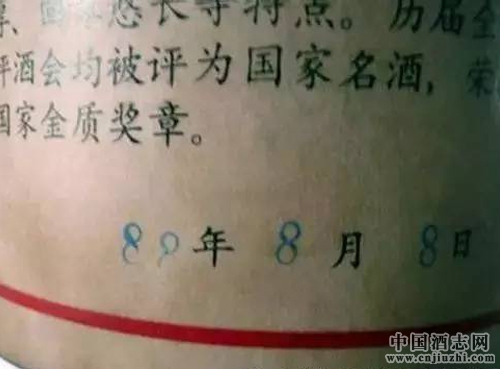 悠长等特点。历届全
评酒会均被评为国家名酒，荣
国家金质奖章。
88年 8月 8日
中国酒志网
www.cnjiuzhi.com